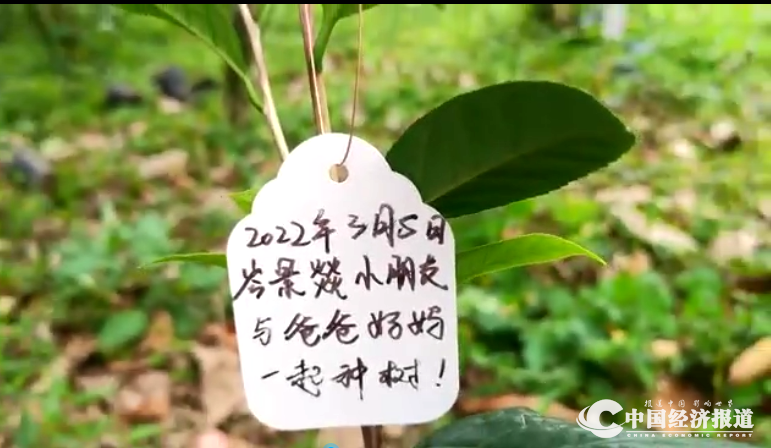 2022年3月5日
岑景燚小朋友
与爸爸妈妈
一起种树！
报道中国 影响世界
中国经济报道
CHINA ECONOMIC REPORT